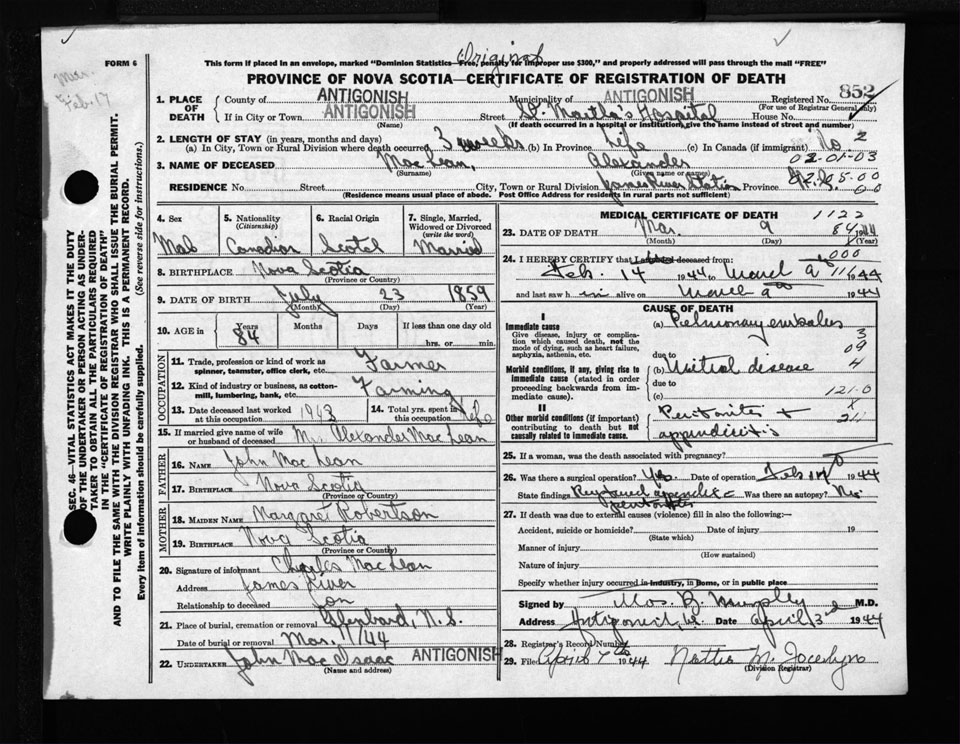 Original
FORM 6
This form if placed in an envelope, marked "Dominion Statistics—Free, (penalty for improper use $300," and properly addressed will pass through the mail "FREE"
PROVINCE OF NOVA SCOTIA—CERTIFICATE OF REGISTRATION OF DEATH
Feb. 17
852
1. PLACE OF DEATH
County of ANTIGONISH Municipality of ANTIGONISH Registered No.
(For use of Registrar General only)
If in City or Town ANTIGONISH Street St. Martha's Hospital House No.
(Name) (If death occurred in a hospital or institution, give the name instead of street and number)
2. LENGTH OF STAY (in years, months and days)
(a) In City, Town or Rural Division where death occurred 3 weeks (b) In Province Life (c) In Canada (if immigrant) No. 2
02-01-03
3. NAME OF DECEASED MacLean, Alexander
(Surname) (Given name or names)
02-05-00
RESIDENCE No. Street City, Town or Rural Division James River Station Province N.S. 0-0
(Residence means usual place of abode. Post Office Address for residents in rural parts not sufficient)
4. Sex Male
5. Nationality (Citizenship) Canadian
6. Racial Origin Scotch
7. Single, Married, Widowed or Divorced (write the word) Married
8. BIRTHPLACE Nova Scotia
(Province or Country)
9. DATE OF BIRTH July 23 1859
(Month) (Day) (Year)
10. AGE in Years Months Days If less than one day old
84 hrs. or min.
OCCUPATION
11. Trade, profession or kind of work as spinner, teamster, office clerk, etc. Farmer
12. Kind of industry or business, as cotton-mill, lumbering, bank, etc. Farming
13. Date deceased last worked at this occupation 1943 14. Total yrs. spent in this occupation Life
15. If married give name of wife or husband of deceased Mrs Alexander MacLean
FATHER
16. NAME John MacLean
17. BIRTHPLACE Nova Scotia
MOTHER
18. MAIDEN NAME Margret Robertson
19. BIRTHPLACE Nova Scotia
(Province or Country)
20. Signature of informant Charles MacLean
Address James River
Relationship to deceased Son
21. Place of burial, cremation or removal Glenbard, N.S.
Date of burial or removal Mar. 11/44
22. UNDERTAKER John MacIsaac ANTIGONISH
(Name and address)
MEDICAL CERTIFICATE OF DEATH
1122
23. DATE OF DEATH Mar. 9 1944
84
(Month) (Day) (Year)
000
24. I HEREBY CERTIFY that I attended deceased from:
Feb. 14 1944 to March 9th 1944
116
and last saw him alive on March 9th 1944
CAUSE OF DEATH
I
Immediate cause
Give disease, injury or complication which caused death, not the mode of dying, such as heart failure, asphyxia, asthenia, etc.
(a) Pulmonary embolus
3
due to
09
Morbid conditions, if any, giving rise to immediate cause (stated in order proceeding backwards from immediate cause).
(b) Mitral disease
4
due to
(c)
121-0
II
X
Other morbid conditions (if important) contributing to death but not causally related to immediate cause.
Peritonitis + appendicitis
25. If a woman, was the death associated with pregnancy?
26. Was there a surgical operation? Yes. Date of operation Feb 14 1944
State findings Ruptured appendix - peritonitis Was there an autopsy? No.
27. If death was due to external causes (violence) fill in also the following:—
Accident, suicide or homicide? Date of injury 19
(State which)
Manner of injury
(How sustained)
Nature of injury
Specify whether injury occurred in industry, in home, or in public place
Signed by Mos. B. Murphy M.D.
Address Antigonish, N.S. Date April 3rd 1944
28. Registrar's Record Number
29. Filed April 7th 1944 Nettie M. Jocelyn
(Division Registrar)
SEC. 46—VITAL STATISTICS ACT MAKES IT THE DUTY
OF THE UNDERTAKER OR PERSON ACTING AS UNDER-
TAKER TO OBTAIN ALL THE PARTICULARS REQUIRED
IN THE "CERTIFICATE OF REGISTRATION OF DEATH"
AND TO FILE THE SAME WITH THE DIVISION REGISTRAR WHO SHALL ISSUE THE BURIAL PERMIT.
WRITE PLAINLY WITH UNFADING INK. THIS IS A PERMANENT RECORD.
Every item of information should be carefully supplied. (See reverse side for instructions.)